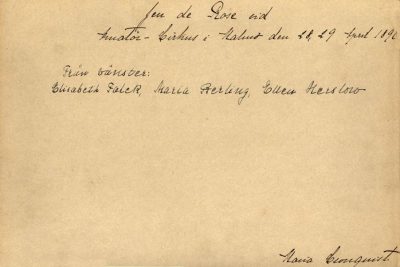 Jeu de Rose vid
Amatör-Cirkus i Malmö den 28, 29 April 1890
Från vänster:
Elisabeth Falck, Maria Perling, Ellen Herslow
Maria Cronquist